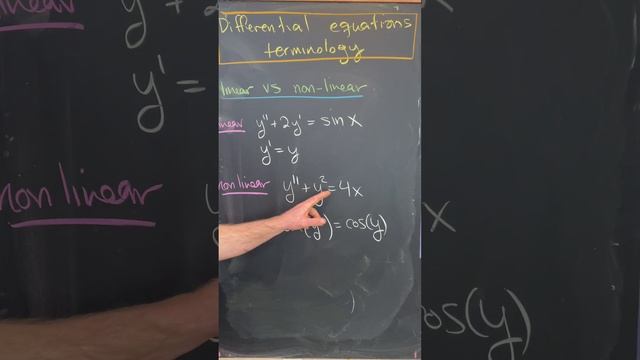 Differential equations
terminology
linear vs non-linear
linear y" + 2y' = sin x
y' = y
nonlinear y" + y² = 4x
(y') = cos(y)